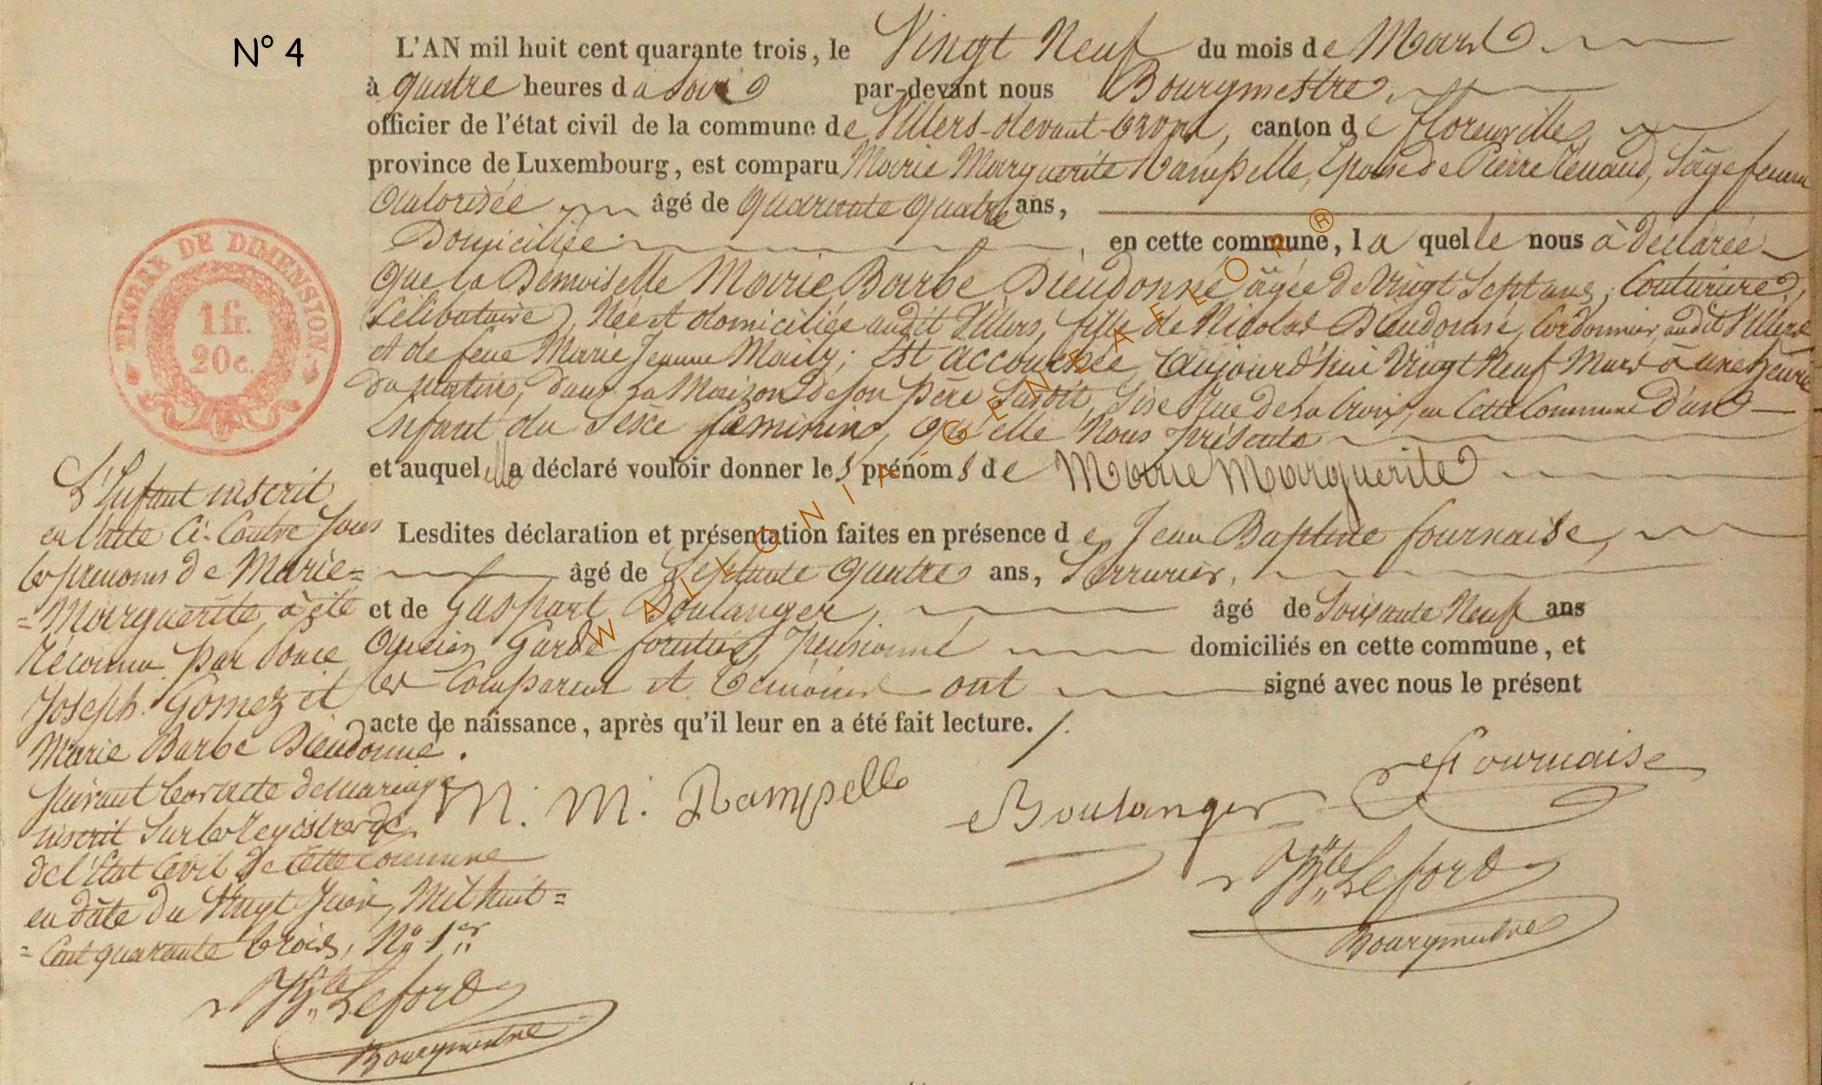 N° 4
L'AN mil huit cent quarante trois, le Vingt Neuf du mois de Mars
à quatre heures du Soir par-devant nous Bourgmestre
officier de l'état civil de la commune de Villers-devant-Orval, canton de florenville,
province de Luxembourg, est comparu Marie Marguerite Rampelle, Epouse de Pierre Renaud, Sage femme
autorisée âgé de quarante quatre ans,
Domiciliée en cette commune, la quelle nous à déclarée
que la Demoiselle Marie Barbe Dieudonné âgée de Vingt Sept ans, Couturière,
Célibataire, Née et domiciliée audit Villers, fille de Nicolas Dieudonné, Cordonnier audit Villers
et de feue Marie Jeanne Maily; Est accouchée aujourd'hui Vingt Neuf Mars à une heure
du matin, dans la Maison de son Père Susdit, Sise Rue de la Croix, en Cette Commune D'un
Enfant du Sexe féminin, qu'elle Nous présente
et auquel elle a déclaré vouloir donner les prénoms de Marie Marguerite
Lesdites déclaration et présentation faites en présence de Jean Baptiste fournaise,
âgé de Septante quatre ans, Serrurier,
et de Gaspart Boulanger, âgé de Soixante Neuf ans
ancien Garde forestier, Pensionné domiciliés en cette commune, et
les Comparant et Témoins ont signé avec nous le présent
acte de naissance, après qu'il leur en a été fait lecture. /.
M. M. Rampelle
Boulanger
Fournaise
Leford
Bourgmestre
TIMBRE DE DIMENSION
1 fr.
20c.
L'Enfant inscrit
en l'acte Ci-Contre Sous
les prénoms de Marie=
=Marguerite, à été
Reconnu par
Joseph Gomez et
Marie Barbe Dieudonné.
Suivant leur acte de mariage
inscrit Sur les Registres
de l'Etat Civil de Cette Commune
en date du Vingt Juin, Mil huit=
=Cent quarante trois, N° 1er
Leford
Bourgmestre
WALLONIA-GENEAFLOR ®